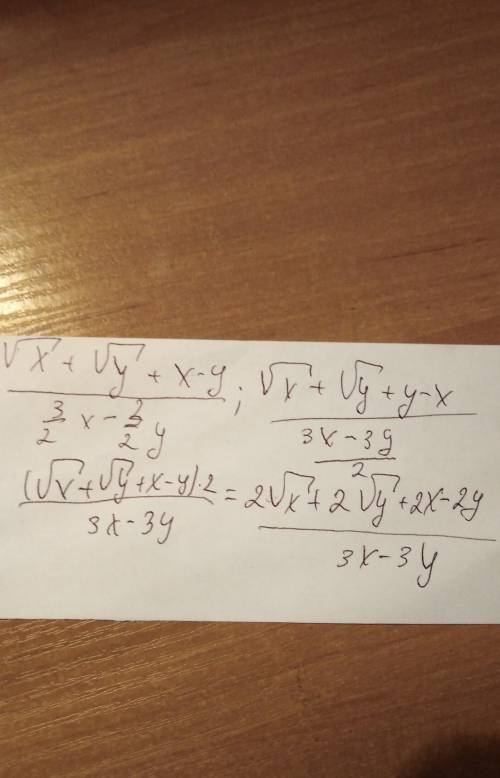 (√x + √y + x-y)/(3/2 x - 3/2 y) ; (√x + √y + y-x)/((3x-3y)/2)
((√x+√y+x-y)·2)/(3x-3y) = (2√x+2√y+2x-2y)/(3x-3y)